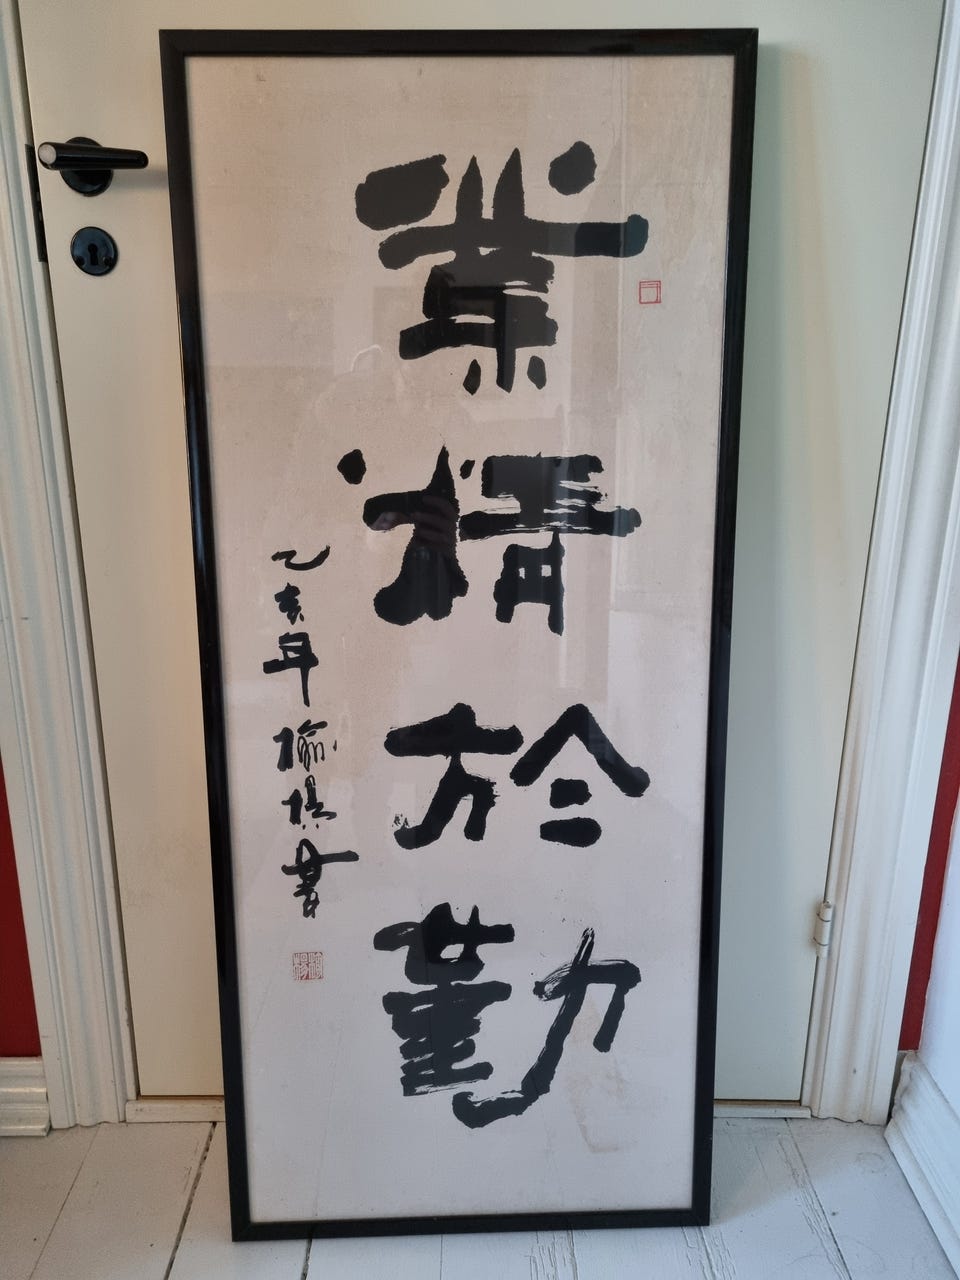 業精於勤
乙亥年榆棋書